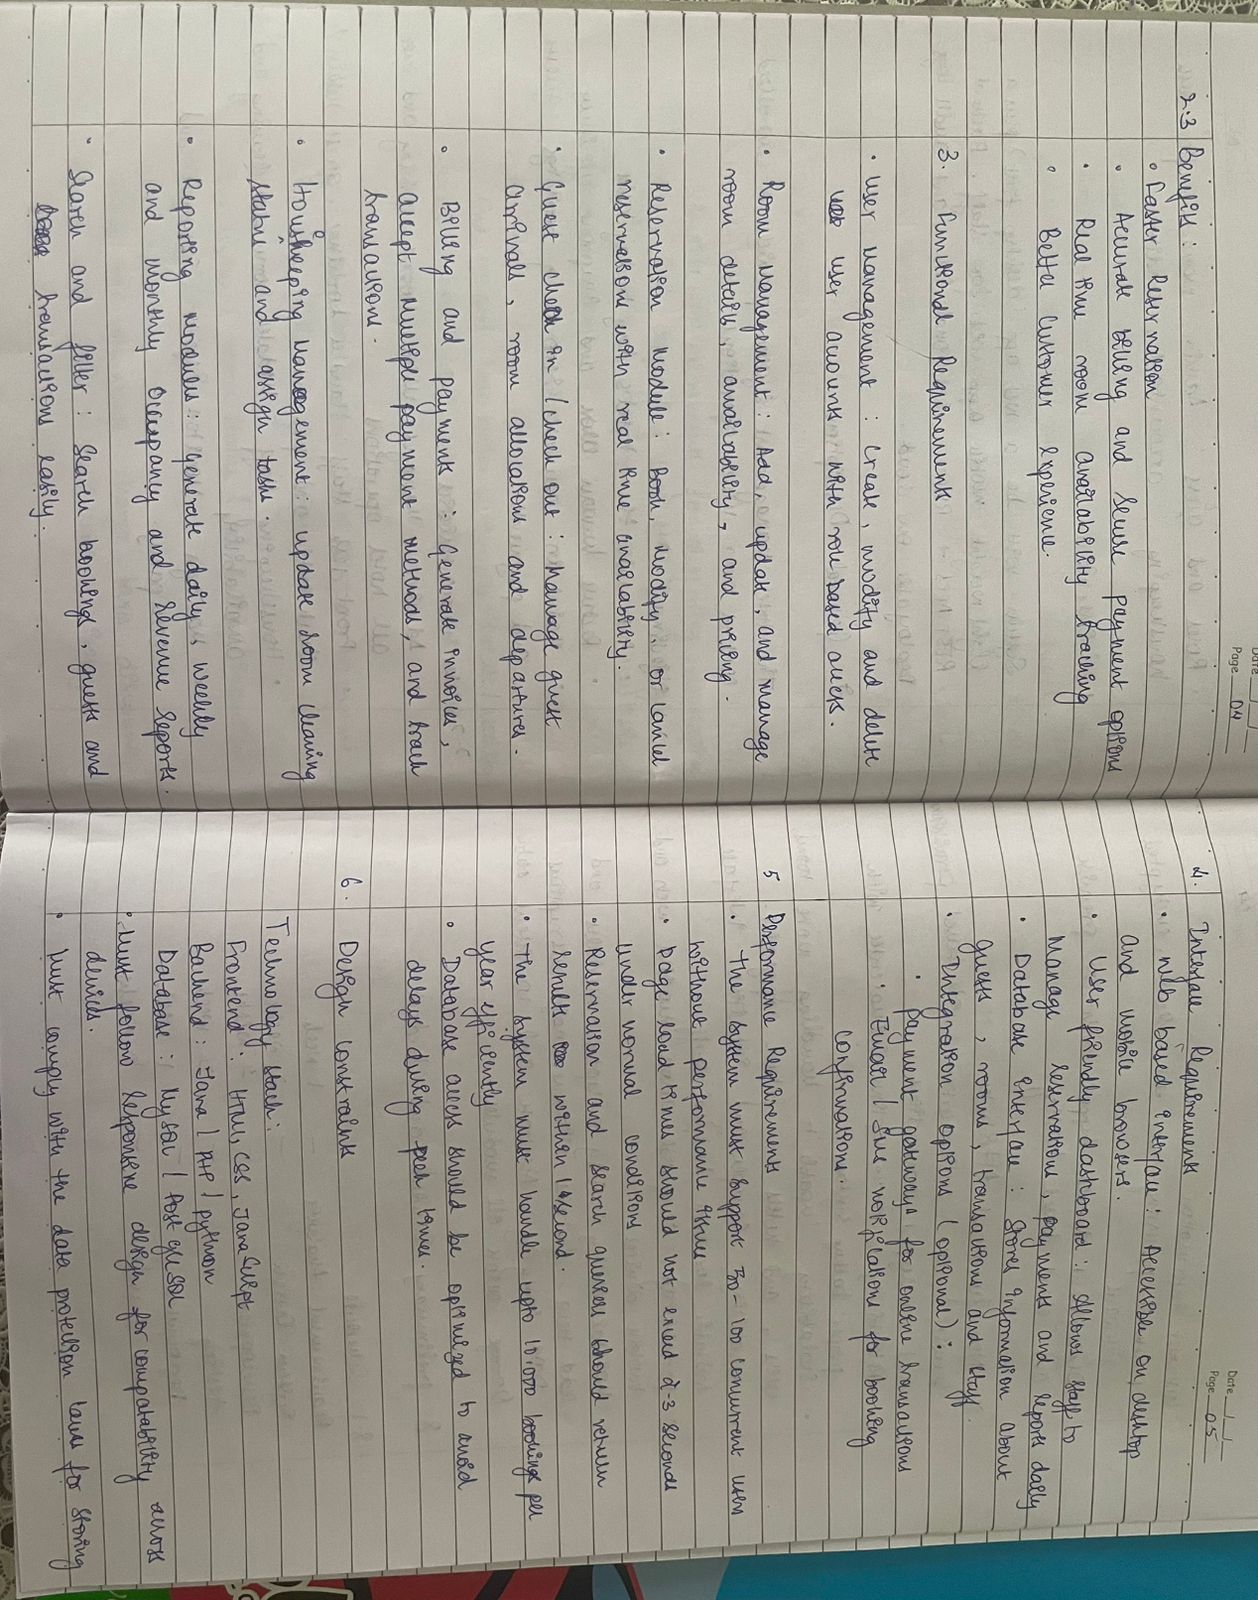 Date / /
Page 04
2.3 Benefits:
• Faster Reservation
• Accurate billing and secure payment options
• Real time room availability tracking
• Better customer experience.
3. Functional Requirements
• User Management : Create, modify and delete
user accounts with role based access.
• Room Management : Add, update, and manage
room details, availability, and pricing.
• Reservation Module : Book, Modify or cancel
reservations with real time availability.
• Guest check in / check out : Manage guest
arrivals, room allocations and departures.
• Billing and payments : Generate invoices,
accept multiple payment methods, and track
transactions.
• Housekeeping Management : update room cleaning
status and assign tasks.
• Reporting Module : Generate daily, weekly
and monthly occupancy and revenue reports.
• Search and filter : Search bookings, guests and
transactions easily.
Date / /
Page 05
4. Interface Requirements
• Web based interface : Accessible on desktop
and mobile browsers.
• User friendly dashboard : Allows staff to
Manage reservations, payments and reports daily
• Database interface : Stores information about
guests, rooms, transactions and staff
• Integration options (optional) :
• Payment gateways for online transactions
• Email / SMS notifications for booking
confirmations.
5 Performance Requirements
• The system must support 50-100 concurrent users
without performance issues
• Page load times should not exceed 2-3 seconds
under normal conditions
• Reservation and search queries should return
results within 1 second.
• The system must handle upto 10,000 bookings per
year efficiently
• Database access should be optimized to avoid
delays during peak times.
6. Design constraints
Technology stack:
Frontend : HTML, CSS, JavaScript
Backend : Java / PHP / python
Database : MySQL / PostgreSQL
• Must follow responsive design for compatability across
devices.
• Must comply with the data protection laws for storing